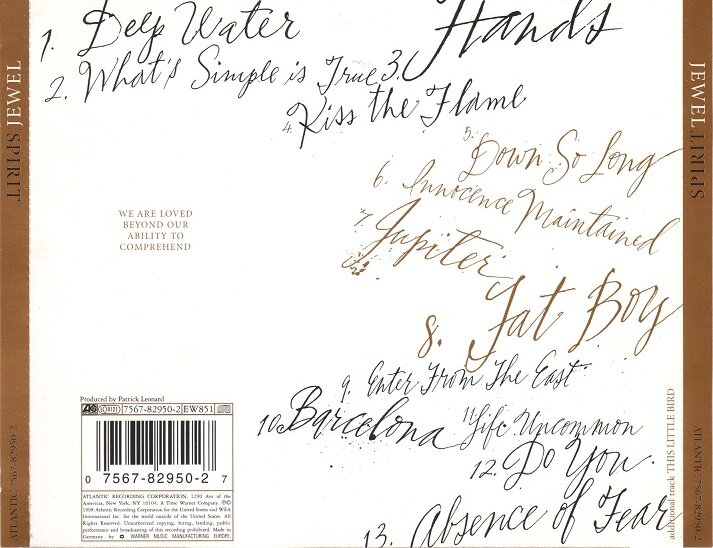 SPIRIT JEWEL
JEWEL SPIRIT
1. Deep Water
2. What's Simple is True
3. Hands
4. Kiss the Flame
5. Down So Long
6. Innocence Maintained
7. Jupiter
8. Fat Boy
9. Enter From The East
10. Barcelona
11. Life Uncommon
12. Do You
13. Absence of Fear
WE ARE LOVED
BEYOND OUR
ABILITY TO
COMPREHEND
additional track THIS LITTLE BIRD
Produced by Patrick Leonard
7567-82950-2 EW851
0 7567-82950-2 7
ATLANTIC RECORDING CORPORATION, 1290 Ave of the
Americas, New York, NY 10104. A Time Warner Company. ©℗
1998 Atlantic Recording Corporation for the United States and WEA
International Inc. for the world outside of the United States. All
Rights Reserved. Unauthorized copying, hiring, lending, public
performance and broadcasting of this recording prohibited. Made in
Germany by WARNER MUSIC MANUFACTURING EUROPE.
ATLANTIC 7567-82950-2
ATLANTIC 7567-82950-2